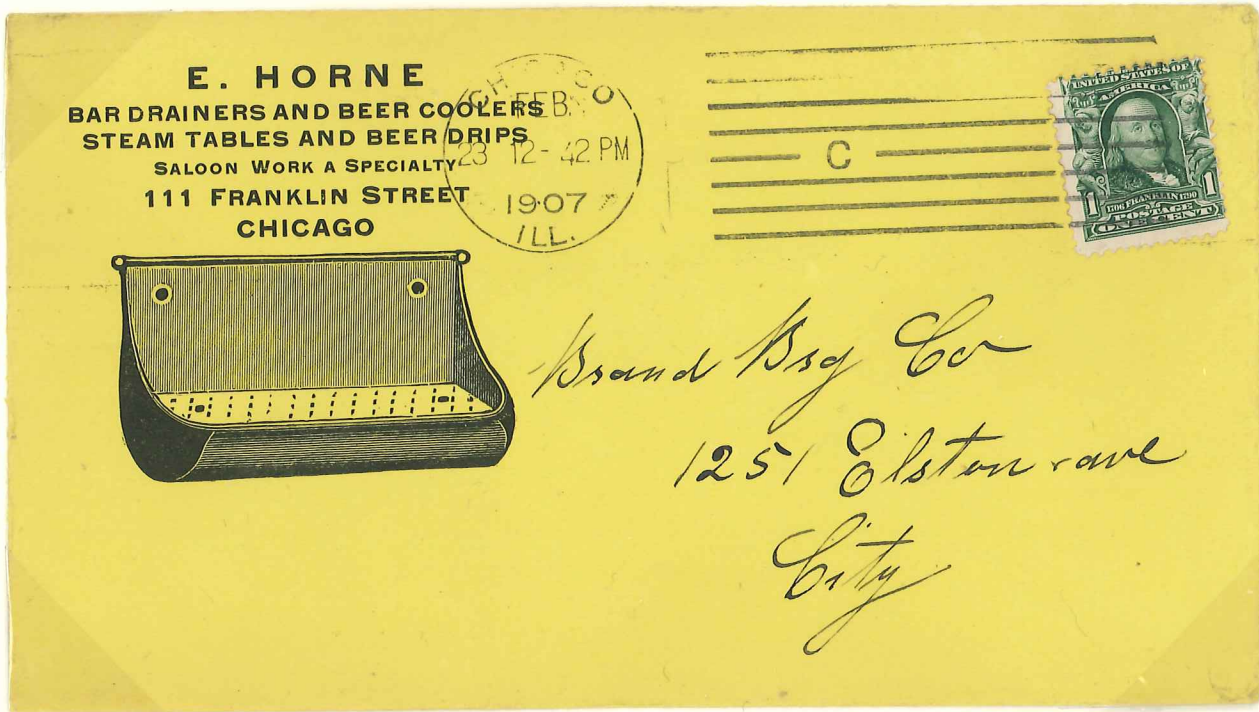 E. HORNE
BAR DRAINERS AND BEER COOLERS
STEAM TABLES AND BEER DRIPS
SALOON WORK A SPECIALTY
111 FRANKLIN STREET
CHICAGO
CHICAGO
FEB
23 12-42 PM
1907
ILL.
C
UNITED STATES OF
AMERICA
1706 FRANKLIN 1790
1 1
POSTAGE
ONE CENT
Brand Brg Co
1251 Elston ave
City